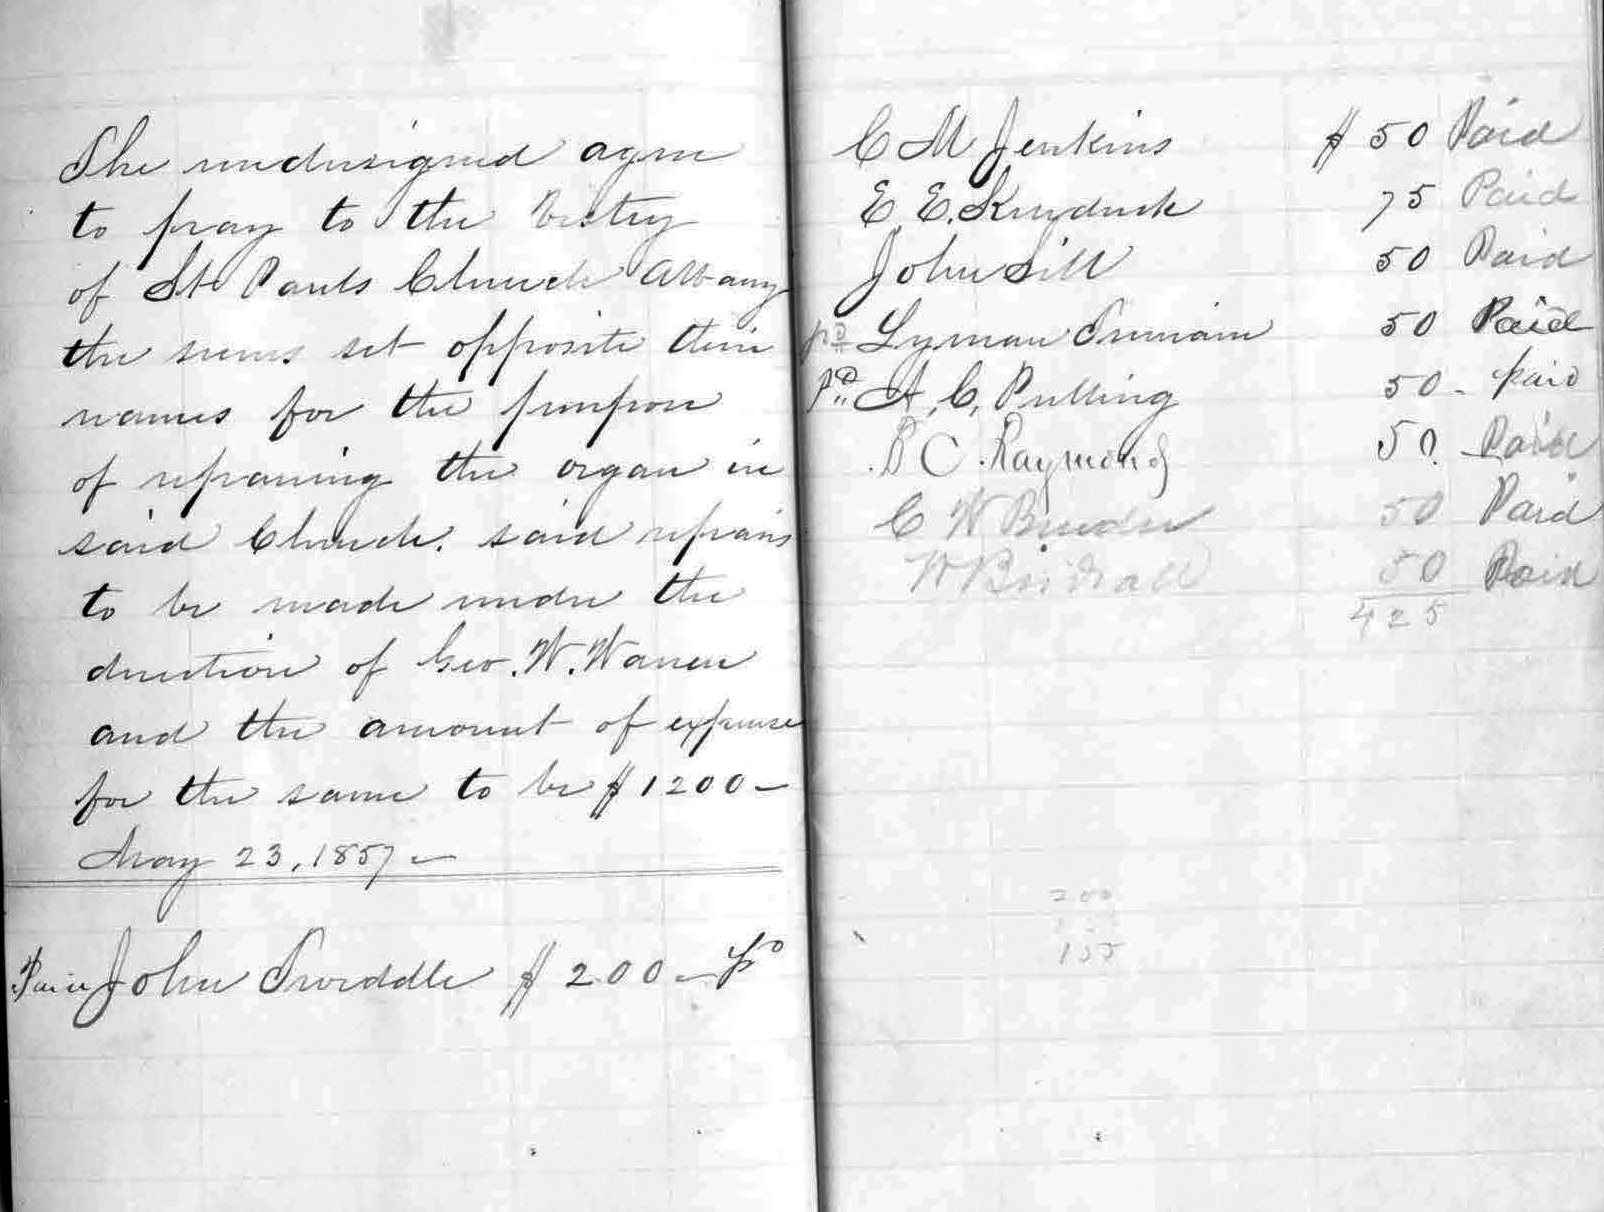 The undersigned agree
to pay to the Vestry
of St Pauls Church Albany
the sums set opposite their
names for the purpose
of repairing the organ in
said Church. said repairs
to be made under the
direction of Geo. W. Warren
and the amount of expense
for the same to be $1200—
May 23, 1857—
Paid John Tweddle $200— pd
C M Jenkins $50 Paid
E. E. Kendrick 75 Paid
John Sill 50 Paid
pd Lyman Tremain 50 Paid
pd A. C. Pulling 50- paid
B C. Raymond 50. Paid
C W Bender 50 Paid
W Birdsall 50 Paid
425
200
155